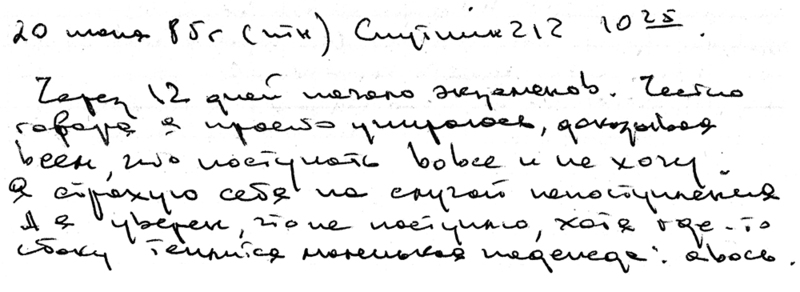 20 июня 85г (птн) Спутник 212 10 25.
Через 12 дней начало экзаменов. Честно
говоря я просто умираю, доказывая
всем, что поступать вовсе и не хочу
Я страхую себя на случай непоступления
А я уверен, что не поступлю, хотя где-то
сбоку теплится маленькая надежда: авось.